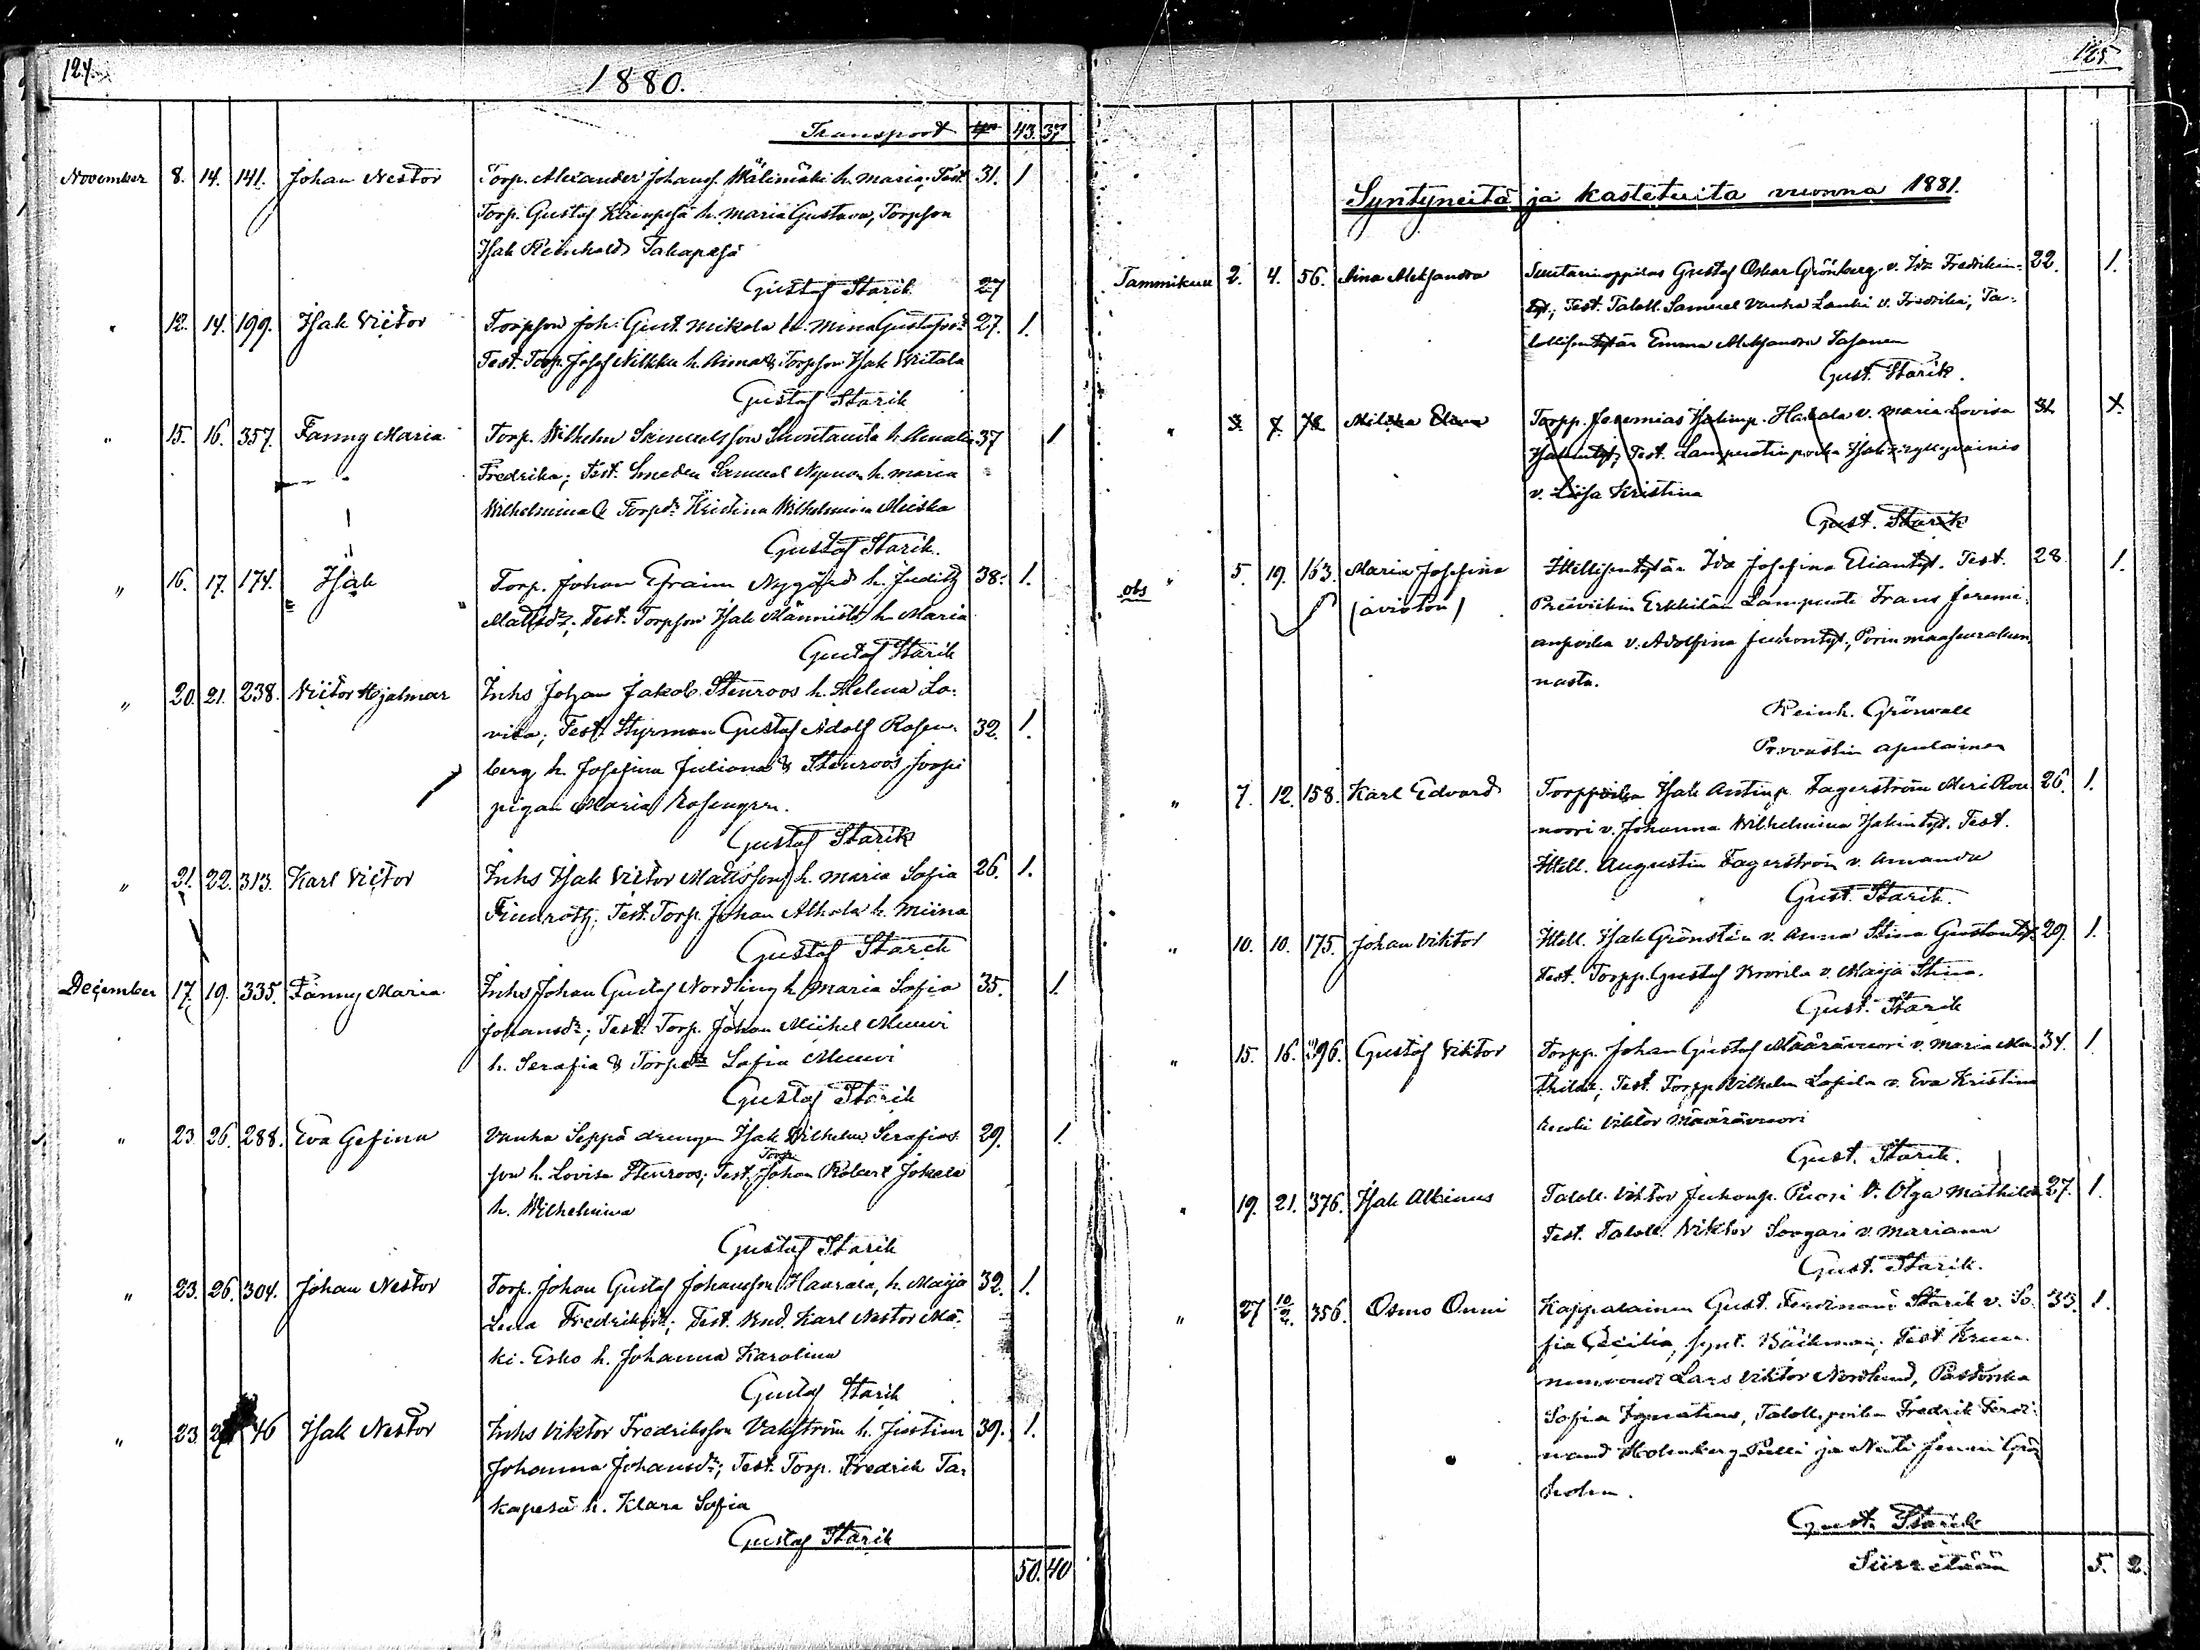 124.
1880.
Transport 43. 37
November 8. 14. 141. Johan Nestor Torp. Alexander Johanss. Wälimäki h. Maria; Test. 31. 1
Torp. Gustaf Kämpesä h. Maria Gustava, Torpson
Isak Reinhold Takapesä
Gustaf Starik 27
" 12. 14. 199. Isak Victor Torpson Joh. Gust. Mikola h. Mina Gustafsdr 27. 1.
Test. Torp. Josef Nikku h. Anna & Torpson Isak Wiitala
Gustaf Starik
" 15. 16. 357. Fanny Maria Torp. Wilhelm Samuelsson Suontausta h. Amalia 37 1
Fredrika; Test. Smeden Samuel Nyman h. Maria
Wilhelmina & Torpdr Kristina Wilhelmina
Gustaf Starik.
" 16. 17. 174. Isak Torp. Johan Efraim Nygård h. Judith 38. 1.
Mattsdr; Test. Torpson Isak Männistö h. Maria
Gustaf Starik
" 20. 21. 238. Victor Hjalmar Inhs Johan Jakob Stenroos h. Helena Lo-
visa; Test. Styrman Gustaf Adolf Rosen- 32. 1.
berg h. Josefina Juliana & Stenroos
pigan Maria Rosengren.
Gustaf Starik
" 21. 22. 313. Karl Victor Inhs Isak Victor Mattsson h. Maria Sofia 26. 1.
Finnroth; Test. Torp. Johan Alhola h. Miina
Gustaf Starik
December 17. 19. 335. Fanny Maria Inhs Johan Gustaf Nordling h. Maria Sofia 35. 1.
Johansdr; Test. Torp. Johan Mickel
h. Serafia & Torpdr Sofia
Gustaf Starik
" 23. 26. 288. Eva Gefina Vanha Seppä drengen Isak Wilhelm Serafias- 29. 1.
son h. Lovisa Stenroos; Test. Torp. Johan Robert Jokela
h. Wilhelmina
Gustaf Starik
" 23. 26. 304. Johan Nestor Torp. Johan Gustaf Johansson Haarala, h. Maija 32. 1.
Lena Fredriksdr; Test. Bnd. Karl Nestor Mä-
ki-Esko h. Johanna Karolina
Gustaf Starik
" 23 46 Isak Nestor Inhs Viktor Fredriksson Vakström h. Justina 39. 1.
Johanna Johansdr; Test. Torp. Fredrik Ta-
kapesä h. Klara Sofia
Gustaf Starik
50. 40
125
Syntyneitä ja kastetuita vuonna 1881.
Tammikuu 2. 4. 56. Aina Aleksandra Suutarinoppilas Gustaf Oskar Grönberg v. Ida Fredrikin- 22. 1.
tyt; Test. Taloll. Samuel Vanha Lauki v. Fredrika, Ta-
lollisentytär Emma Aleksandra Sasanen
Gust. Starik.
" 3. 7. Milka Elena Torpp. Jeremias Iisakinp. Hakala v. Maria Lovisa 31 X
Test. Lampuotinpoika Isak
v. Liisa Kristina
Gust. Starik
obs " 5. 19. 163. Maria Josefina Itellisentytär Ida Josefina Eliantyt. Test. 28. 1.
(äviötön) Preiviikin Erkkilän Lampuoti Frans Jeremi-
anpoika v. Adolfina Juhontyt, Porin maaseurakun-
nasta.
Reinh. Grönvall
Provastin apulainen
" 7. 12. 158. Karl Edvard Torppoika Isak Antinp. Fagerström 26. 1.
v. Johanna Wilhelmina Isakintyt. Test.
Itell. Augustin Fagerström v. Amanda
Gust. Starik.
" 10. 10. 175. Johan Viktor Itell. Isak Grönstén v. Anna Stina Gustavintyt. 29. 1.
Test. Torpp. Gustaf v. Maija Stina.
Gust. Starik
" 15. 16. 396. Gustaf Viktor Torpp. Johan Gustaf Määrävuori v. Maria Ma- 34. 1.
thilda; Test. Torpp Wilhelm v. Eva Kristina
Viktor Määrävuori
Gust. Starik.
" 19. 21. 376. Isak Albinus Taloll. Viktor Juhonp. Puosi v. Olga Mathilda 27. 1.
Test. Taloll. Viktor v. Mariana
Gust. Starik.
" 27 10/2. 356. Osmo Onni Kappalainen Gust. Ferdinand Starik v. So- 33. 1.
fia Cecilia, synt. Bäckman; Test. Kruu-
nunvouti Lars Viktor Nordlund, Pastorska
Sofia Ignatius, Talollispoika Fredrik Ferdi-
nand Holmberg Pulli ja Neiti Jenni Grön-
holm.
Gust. Starik
Siirretään 5. 2.